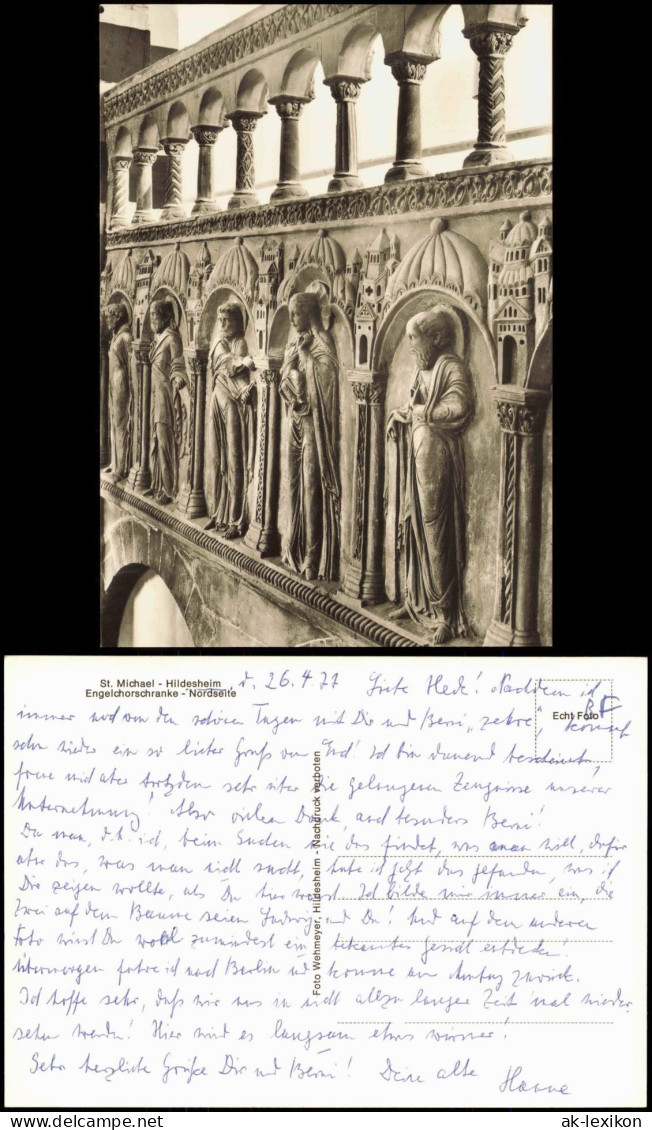 St. Michael - Hildesheim
Engelchorschranke - Nordseite
Echt Foto
BF
d. 26.4.77 Liebe Hede! Nachdem ich
immer noch von den schönen Tagen mit Dir und Berni „zehre“, kommt
schon wieder ein so lieber Gruß von Euch! Ich bin dauernd beschämt,
freue mich aber trotzdem sehr über die gelungenen Zeugnisse unserer
Unternehmung! Also vielen Dank, auch besonders Berni!
Da man, d.h. ich, beim Suchen nie das findet, was man will, dafür
aber das, was man nicht sucht, habe ich jetzt das gefunden, was ich
Dir zeigen wollte, als Du hier warst. Ich bilde mir immer ein, die
Zwei auf dem Baume seien Ludwig und Du! Und auf dem anderen
Foto wirst Du wohl zumindest ein bekanntes Gesicht entdecken!
Übermorgen fahre ich nach Berlin und komme am Montag zurück.
Ich hoffe sehr, daß wir uns in nicht allzu langer Zeit 'mal wieder
sehen werden! Hier wird es langsam etwas wärmer!
Sehr herzliche Grüße Dir und Berni! Deine alte
Hanne
Foto Wehmeyer, Hildesheim - Nachdruck verboten
ak-lexikon
www.delcampe.net